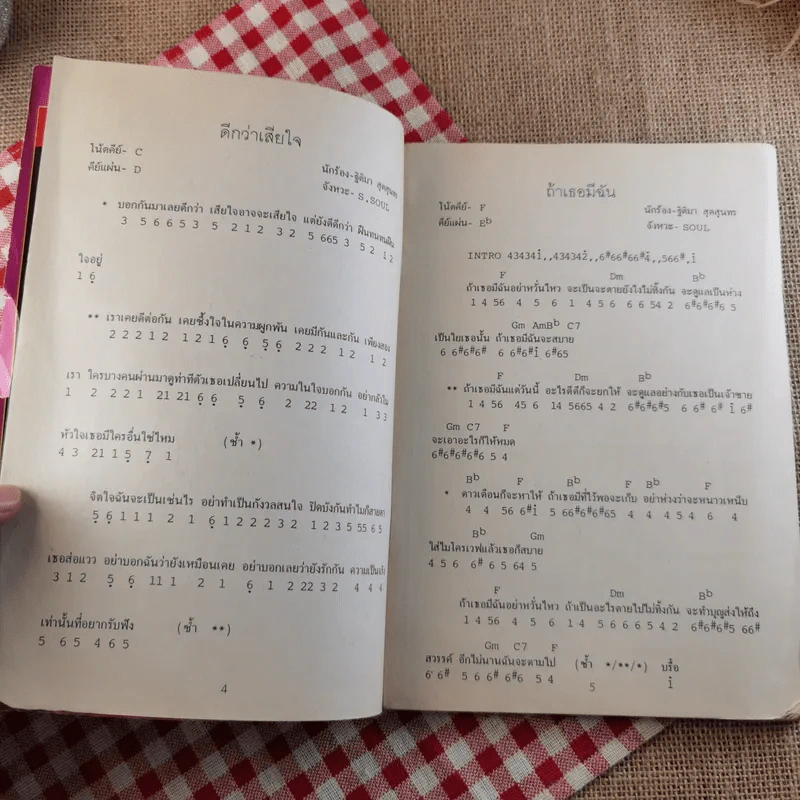 ดีกว่าเสียใจ
โน้ตคีย์- C
นักร้อง-ฐิติมา สุตสุนทร
คีย์แผ่น- D
จังหวะ- S.SOUL
* บอกกันมาเลยดีกว่า เสียใจอาจจะเสียใจ แต่ยังดีกว่า ฝืนทนทนฝืน
3 5 6 6 5 3 5 2 1 2 3 2 5 665 3 5 2 1 2
ใจอยู่
1 6̣
** เราเคยดีต่อกัน เคยซึ้งใจในความผูกพัน เคยมีกันและกัน เพียงสอง
2 2 2 1 2 1 2 1 6̣ 6̣ 5̣ 6̣ 2 2 2 1 2 1 2
เรา ใครบางคนผ่านมาดูท่าทีตัวเธอเปลี่ยนไป ความในใจบอกกัน อย่ากลัวใน
1 2 2 2 1 21 21 6̣ 6̣ 5̣ 6̣ 2 22 1 2 1 3 3
หัวใจเธอมีใครอื่นใช่ไหม (ซ้ำ *)
4 3 21 1 5̣ 7̣ 1
จิตใจฉันจะเป็นเช่นไร อย่าทำเป็นกังวลสนใจ ปิดบังกันทำไมก็สายตา
5̣ 6̣ 1 1 1 2 1 6̣ 1 2 2 2 3 2 1 2 3 5 55 6 5
เธอส่อแวว อย่าบอกฉันว่ายังเหมือนเคย อย่าบอกเลยว่ายังรักกัน ความเป็นจริง
3 1 2 5̣ 6̣ 11 1 2 1 6̣ 1 2 22 3 2 4 4 4
เท่านั้นที่อยากรับฟัง (ซ้ำ **)
5 6 5 4 6 5
4
ถ้าเธอมีฉัน
โน้ตคีย์- F
นักร้อง-ฐิติมา สุตสุนทร
คีย์แผ่น- Eb
จังหวะ- SOUL
INTRO 43434i̇,,434342̇,,6#66#66#4̇,,566#,i̇
F Dm Bb
ถ้าเธอมีฉันอย่าหวั่นไหว จะเป็นจะตายยังไงไม่ทิ้งกัน จะดูแลเป็นห่วง
1 4 56 4 5 6 1 4 5 6 6 6 54 2 6#6#6#6 5
Gm AmBb C7
เป็นใยเธอนั้น ถ้าเธอมีฉันจะสบาย
6 6#6#6# 6 6#6#i̇ 6#65
F Dm Bb
** ถ้าเธอมีฉันแต่วันนี้ อะไรดีดีก็จะยกให้ จะดูแลอย่างกับเธอเป็นเจ้าชาย
1 4 56 45 6 14 5665 4 2 6#6#6#5 6 6# 6# i̇ 6#
Gm C7 F
จะเอาอะไรก็ให้หมด
6#6#6#6#6 5 4
Bb F Bb F Bb F
* ดาวเดือนก็จะหาให้ ถ้าเธอมีที่ไว้พอจะเก็บ อย่าห่วงว่าจะหนาวเหน็บ
4 4 56 6#i̇ 5 66#6#6#65 4 4 4 5 4 6 4
Bb Gm
ใส่ไมโครเวฟแล้วเธอก็สบาย
4 5 6 6# 6 5 64 5
F Dm Bb
ถ้าเธอมีฉันอย่าหวั่นไหว ถ้าเป็นอะไรตายไปไม่ทิ้งกัน จะทำบุญส่งให้ถึง
1 4 56 4 5 6 1 4 5 6 6 6 5 4 2 6#6#6#5 66#
Gm C7 F
สวรรค์ อีกไม่นานฉันจะตามไป (ซ้ำ */**/*) บรื๋อ
6 6# 5 6 6# 6#6 5 4 i̇
5